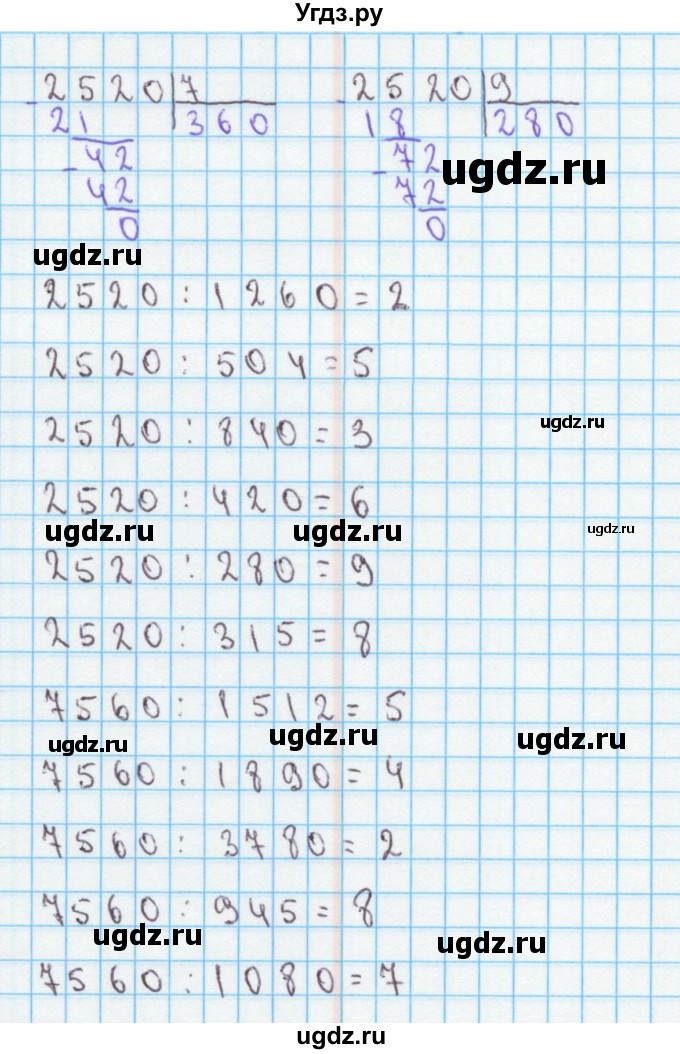 Угдз.ру
2520 | 7    2520 | 9
21    360    18    280
ugdz.ru
42    72
42    72
0    0
ugdz.ru
2520 : 1260 = 2
2520 : 504 = 5
2520 : 840 = 3
ugdz.ru
2520 : 420 = 6
ugdz.ru    ugdz.ru    ugdz.ru
2520 : 280 = 9
2520 : 315 = 8
7560 : 1512 = 5
ugdz.ru    ugdz.ru    ugdz.ru
7560 : 1890 = 4
7560 : 3780 = 2
7560 : 945 = 8
ugdz.ru    ugdz.ru
7560 : 1080 = 7
ugdz.ru